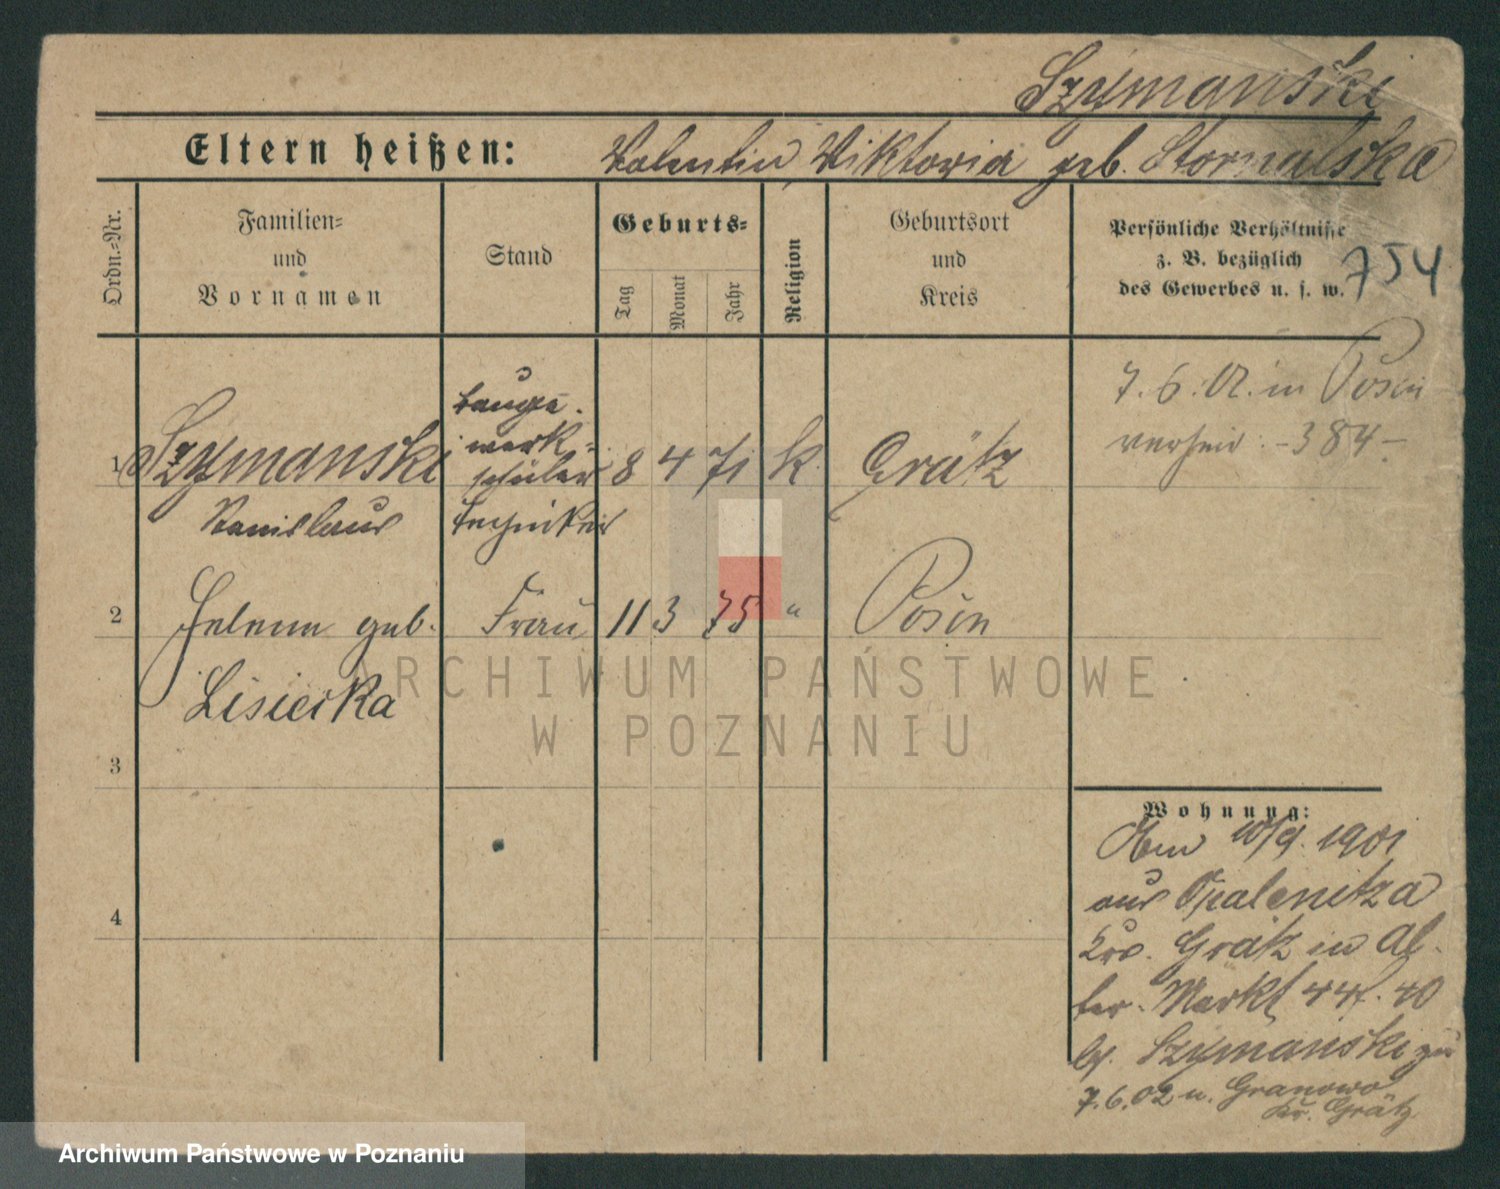 Szymanski
Eltern heißen: Valentin, Viktoria geb.
Ordn.=Nr.
Familien=
und
Vornamen
Stand
Geburts=
Tag
Monat
Jahr
Religion
Geburtsort
und
Kreis
Persönliche Verhältnisse
z. B. bezüglich
des Gewerbes u. s. w.
754
1 Szymanski
Stanislaus
Bauge-
werk-
schüler
Techniker
8 4 71 k. Grätz
7. 6. 02. in Posen
verheir. -384-
2 Helene geb. Frau 11 3 75 " Posen
Lisiecka
3
4
Wohnung:
1901
aus Opalenitza
Krs. Grätz in Al-
ter. Markt 44. 40
bf. Szymanski zu
7.6.02 n. Granowo
Kr. Grätz
ARCHIWUM PAŃSTWOWE
W POZNANIU
Archiwum Państwowe w Poznaniu